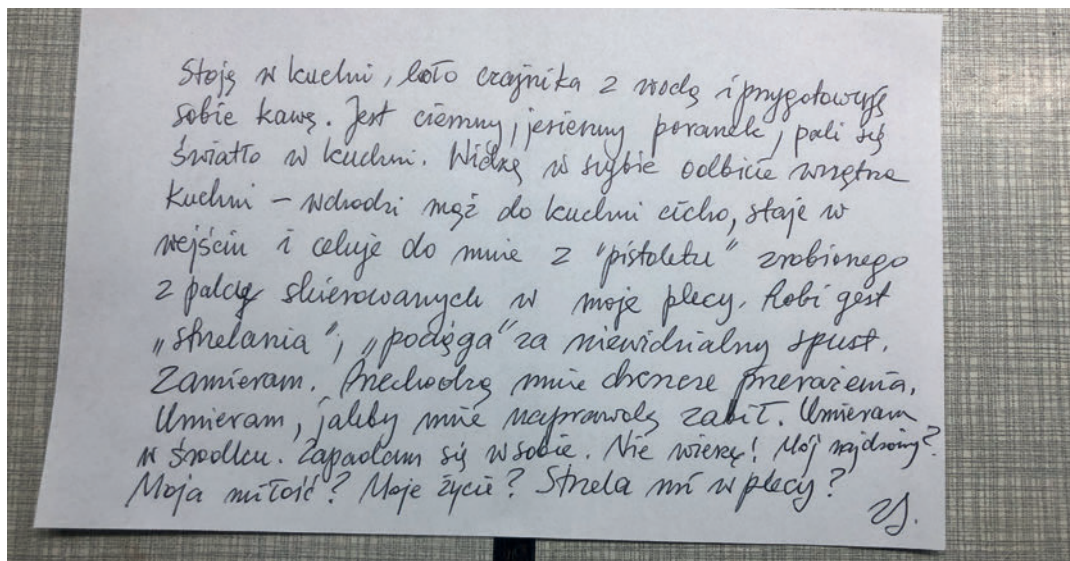 Stoję w kuchni, koło czajnika z wodą i przygotowuję
sobie kawę. Jest ciemny, jesienny poranek, pali się
światło w kuchni. Widzę w szybie odbicie wnętrza
kuchni – wchodzi mąż do kuchni cicho, staje w
wejściu i celuje do mnie z "pistoletu" zrobionego
z palców skierowanych w moje plecy. Robi gest
„strzelania”, „pociąga” za niewidzialny spust.
Zamieram. Przechodzą mnie dreszcze przerażenia.
Umieram, jakby mnie naprawdę zabił. Umieram
w środku. Zapadam się w sobie. Nie wierzę! Mój najdroższy?
Moja miłość? Moje życie? Strzela mi w plecy?